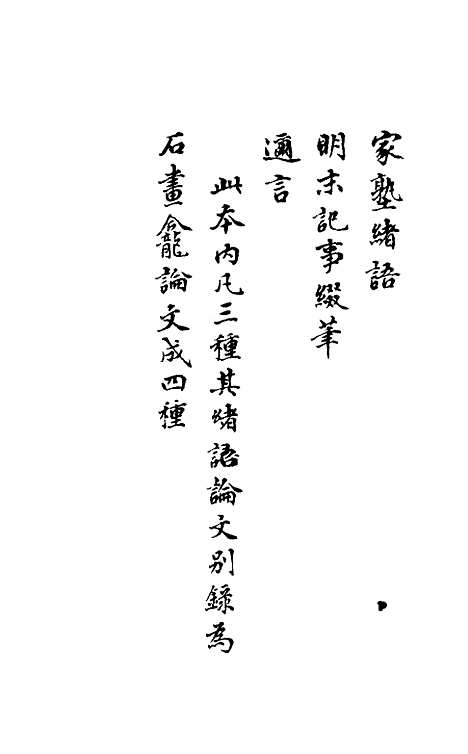 家塾緒語
明末記事綴筆
邇言
此本內凡三種其緒語論文別錄為
石畫龕論文成四種